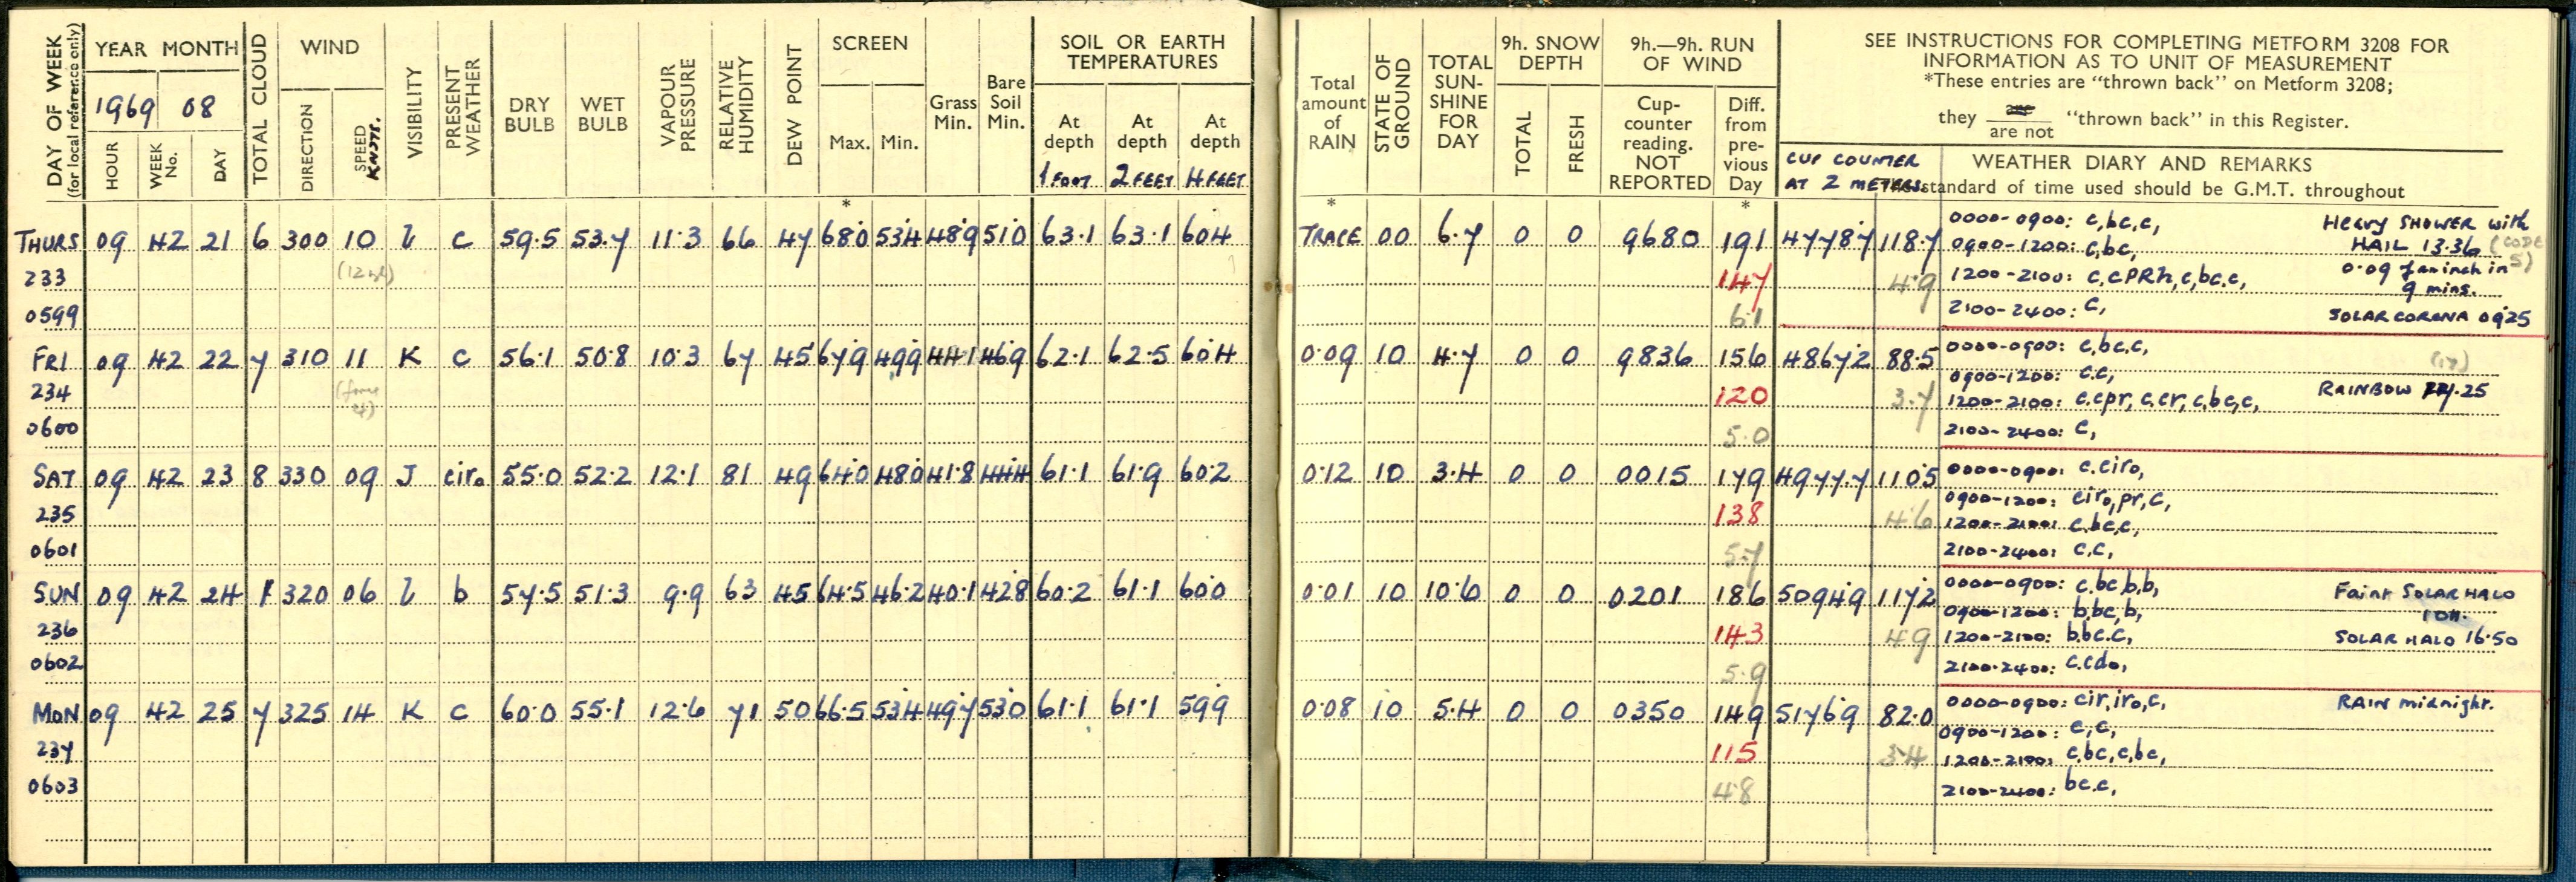 DAY OF WEEK (for local reference only) YEAR MONTH TOTAL CLOUD WIND VISIBILITY PRESENT WEATHER DRY BULB WET BULB VAPOUR PRESSURE RELATIVE HUMIDITY DEW POINT SCREEN Grass Min. Bare Soil Min. SOIL OR EARTH TEMPERATURES
1969 08
HOUR WEEK No. DAY DIRECTION SPEED KNOTS. Max. Min. At depth 1 FOOT At depth 2 FEET At depth 4 FEET
* 
THURS 09 42 21 6 300 10 l c 59.5 53.7 11.3 66 47 68.0 53.4 48.9 51.0 63.1 63.1 60.4
233
0599
FRI 09 42 22 7 310 11 K c 56.1 50.8 10.3 67 45 67.9 49.9 44.1 46.9 62.1 62.5 60.4
234 (force 4)
0600
SAT 09 42 23 8 330 09 J ciro 55.0 52.2 12.1 81 49 64.0 48.0 41.8 44.4 61.1 61.9 60.2
235
0601
SUN 09 42 24 1 320 06 l b 57.5 51.3 9.9 63 45 64.5 46.2 40.1 42.8 60.2 61.1 60.0
236
0602
MON 09 42 25 7 325 14 K c 60.0 55.1 12.6 71 50 66.5 53.4 49.7 53.0 61.1 61.1 59.9
237
0603
Total amount of RAIN STATE OF GROUND TOTAL SUN-SHINE FOR DAY 9h. SNOW DEPTH 9h.—9h. RUN OF WIND
TOTAL FRESH Cup-counter reading. NOT REPORTED Diff. from pre-vious Day
SEE INSTRUCTIONS FOR COMPLETING METFORM 3208 FOR
INFORMATION AS TO UNIT OF MEASUREMENT
*These entries are "thrown back" on Metform 3208;
they are / are not "thrown back" in this Register.
CUP COUNTER AT 2 METERS.
WEATHER DIARY AND REMARKS
standard of time used should be G.M.T. throughout
* *
TRACE 00 6.7 0 0 9680 191 4778.7 118.7 0000-0900: c,bc,c, Heavy SHOWER with
0900-1200: c,bc, HAIL 13.36 (CODE 5)
147 4.9 1200-2100: c,cPRh,c,bc.c, 0.09 of an inch in
9 mins.
61 2100-2400: C, SOLAR CORONA 0925
0.09 10 4.7 0 0 9836 156 4867.2 88.5 0000-0900: c,bc,c,
0900-1200: c.c,
120 3.7 1200-2100: c.cpr, c.cr, c,bc,c, RAINBOW .25
5.0 2100-2400: C,
0.12 10 3.4 0 0 0015 179 4977.7 110.5 0000-0900: c.ciro,
0900-1200: ciro,pr,c,
138 4.6 1200-2100: c,bc,c,
5.7 2100-2400: c,c,
0.01 10 10.6 0 0 0201 186 5094.9 117.2 0000-0900: c.bc,b,b, Faint SOLAR HALO
0900-1200: b,bc,b,
143 4.9 1200-2100: b,bc.c, SOLAR HALO 16.50
5.9 2100-2400: c.cdo,
0.08 10 5.4 0 0 0350 149 5176.9 82.0 0000-0900: cir,iro,c, RAIN midnight.
0900-1200: c,c,
115 3.4 1200-2100: c.bc,c,bc,
4.8 2100-2400: bc.c,